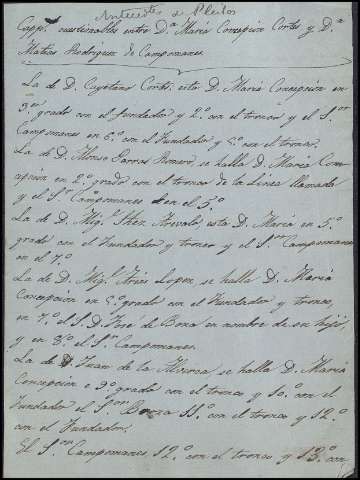 Anteceds. a Pleitos
Capps. cuestionables entre D.ª María Concepción Cortes y D.n
Mateas Rodriguez de Campomanes.
La de D. Cayetano Cortés, esta D. María Concepcion en
3.er grado con el fundador y 2.º con el tronco y el S.or
Campomanes en 6.º con el Fundador y 5.º con el tronco.
La de D. Alonso Parras Romero, se halla D. María Con-
cepcion en 2.º grado con el tronco de la Linea llamada
y el S.or Campomanes en el 5.º
La de D. Mig.l Schez Arevalo, esta D. María en 5.º
grado con el Fundador y tronco y el S.or Campomanes
en el 7.º
La de D. Mig.l Arias Lopez, se halla D. María
Concepcion en 5.º grado con el Fundador y tronco,
en 7.º el S. D. José de Borza en nombre de su hijo,
y en 8.º el S.or Campomanes.
La de D. Juan de la Alberca se halla D. María
Concepcion e 9.º grado con el tronco y 10.º con el
Fundador el S.or Borza 11.º con el tronco y 12.º
con el Fundador.
El S.or Campomanes 12.º con el tronco y 13.º con